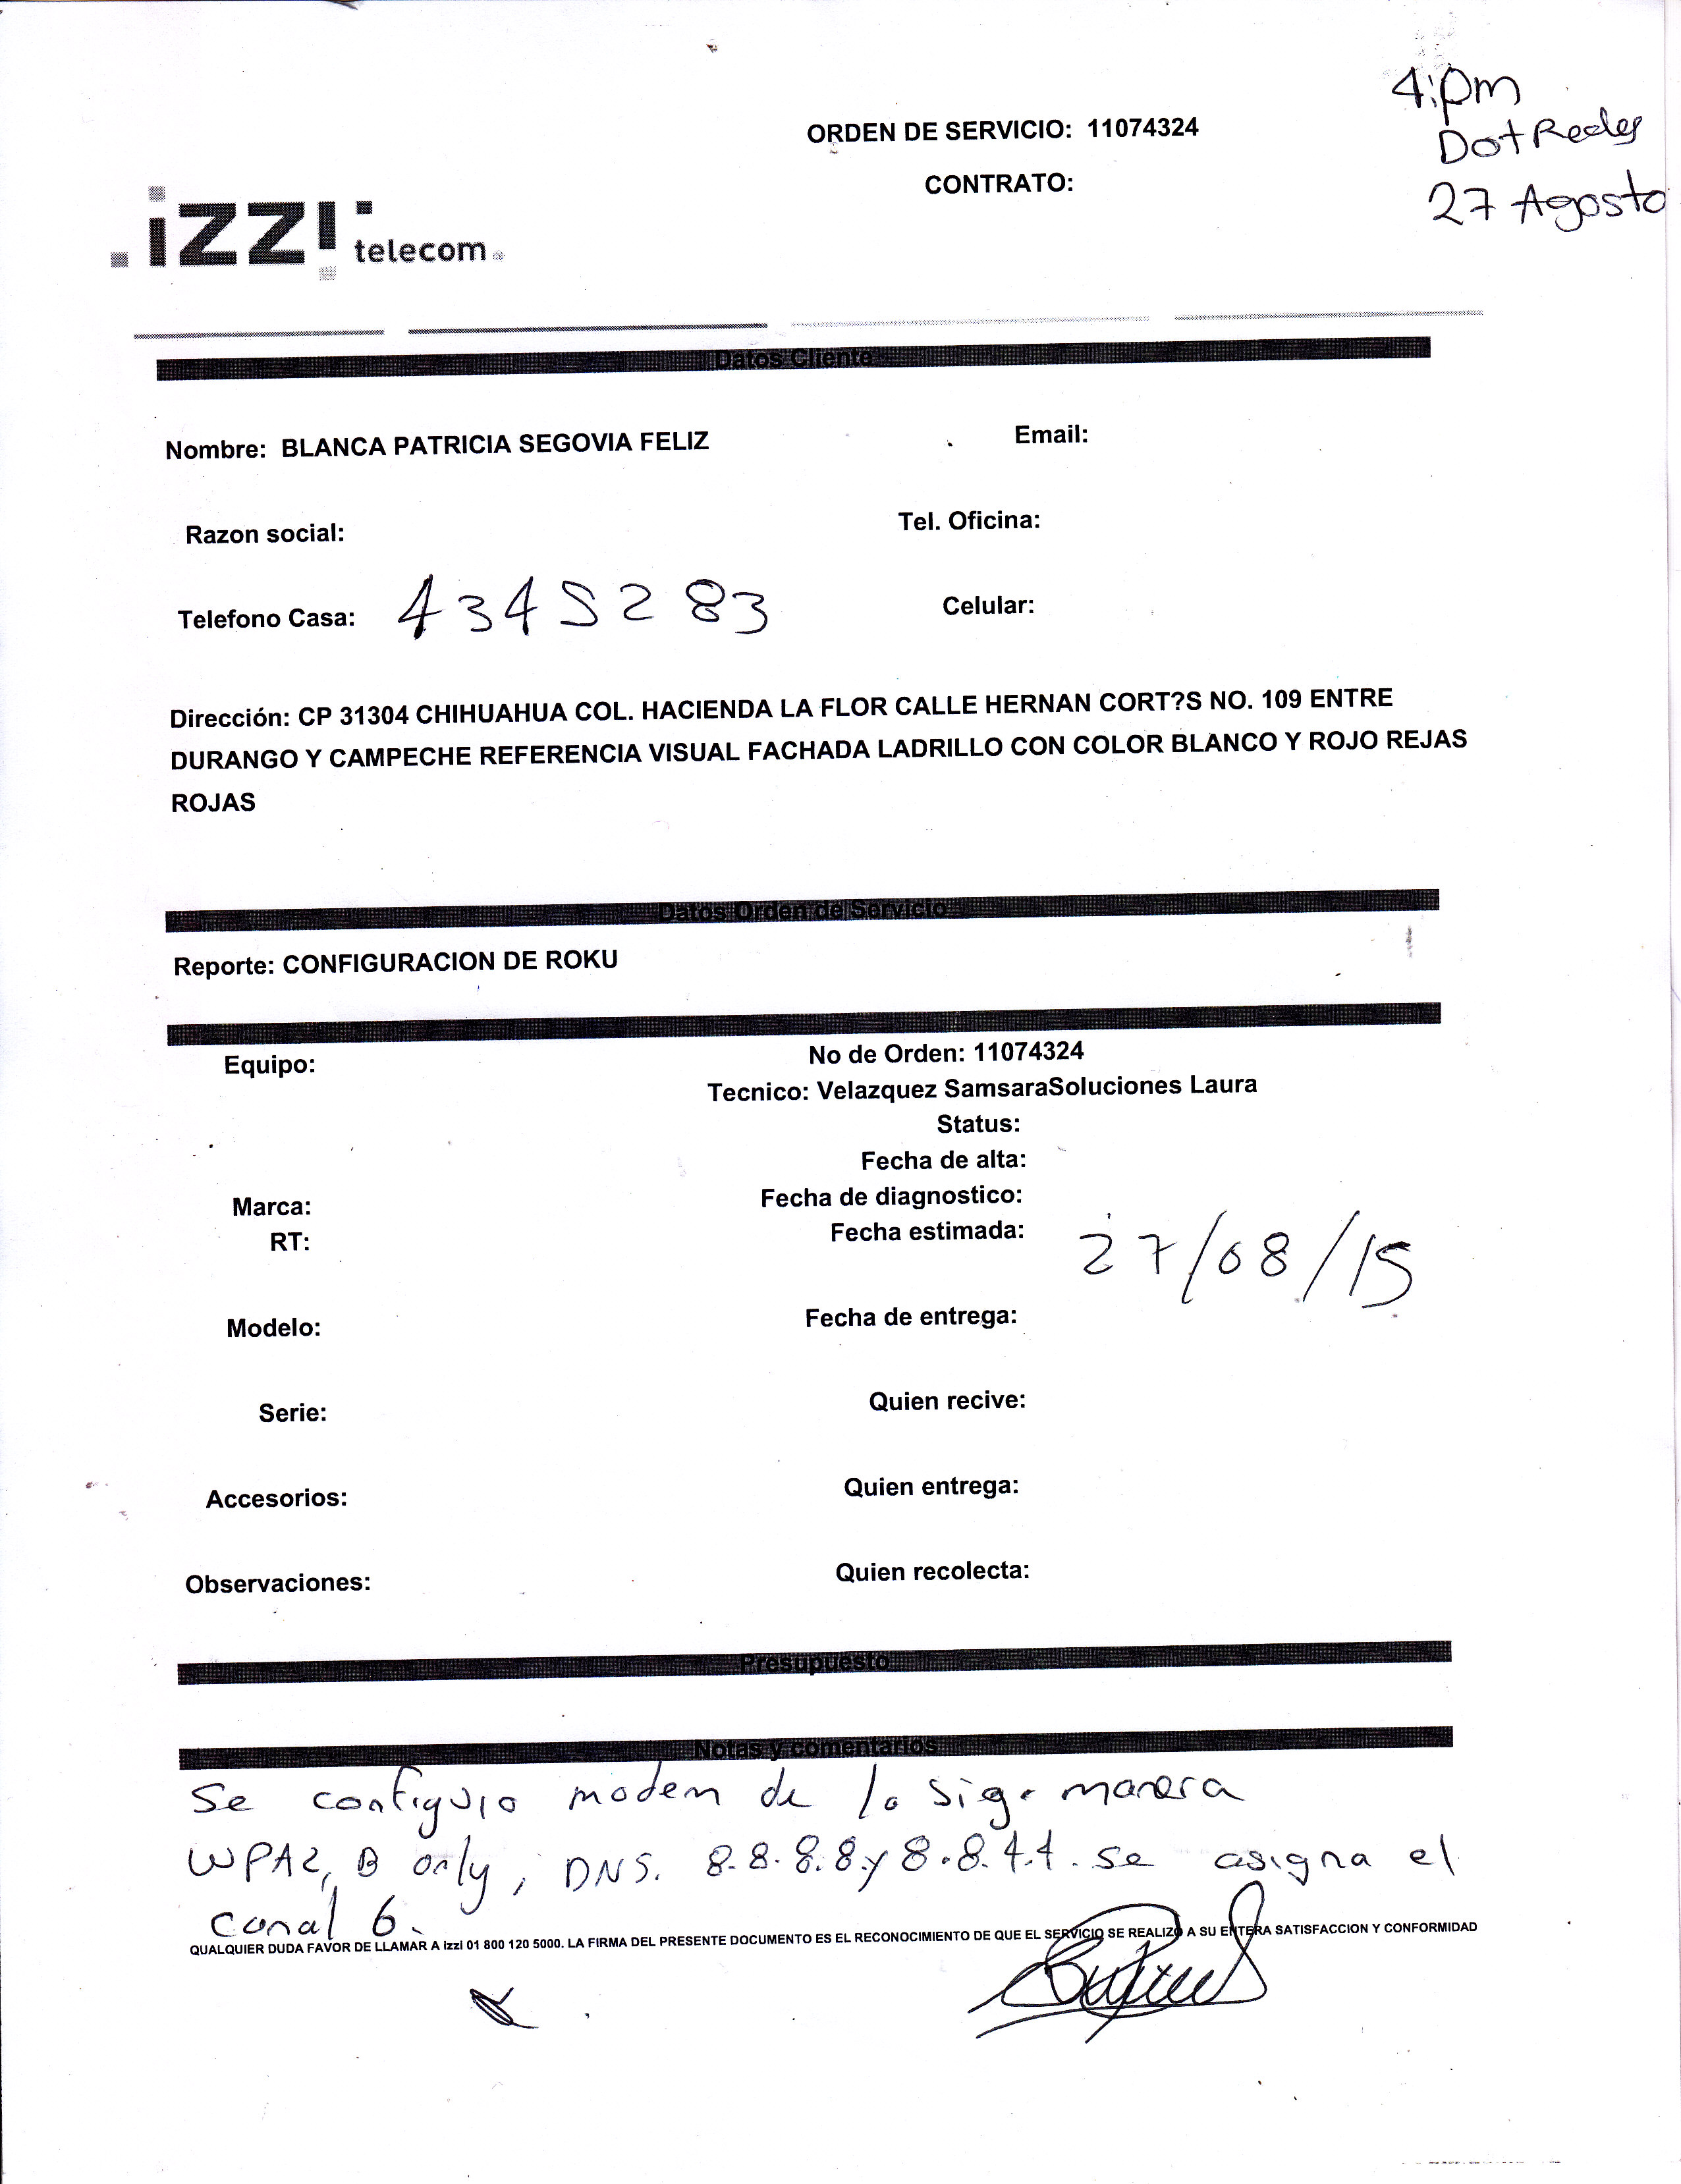 4:pm
ORDEN DE SERVICIO: 11074324
Dot Redes
CONTRATO:
27 Agosto
izzi telecom
Datos Cliente
Nombre: BLANCA PATRICIA SEGOVIA FELIZ
Email:
Razon social:
Tel. Oficina:
Telefono Casa: 4345283
Celular:
Dirección: CP 31304 CHIHUAHUA COL. HACIENDA LA FLOR CALLE HERNAN CORT?S NO. 109 ENTRE
DURANGO Y CAMPECHE REFERENCIA VISUAL FACHADA LADRILLO CON COLOR BLANCO Y ROJO REJAS
ROJAS
Datos Orden de Servicio
Reporte: CONFIGURACION DE ROKU
Equipo:
No de Orden: 11074324
Tecnico: Velazquez SamsaraSoluciones Laura
Status:
Fecha de alta:
Marca:
Fecha de diagnostico:
RT:
Fecha estimada: 27/08/15
Modelo:
Fecha de entrega:
Serie:
Quien recive:
Accesorios:
Quien entrega:
Observaciones:
Quien recolecta:
Presupuesto
Notas y comentarios
Se configuro modem de la sig. manera
WPA2, B only, DNS. 8.8.8.8 y 8.8.4.4. se asigna el
canal 6.
QUALQUIER DUDA FAVOR DE LLAMAR A izzi 01 800 120 5000. LA FIRMA DEL PRESENTE DOCUMENTO ES EL RECONOCIMIENTO DE QUE EL SERVICIO SE REALIZO A SU ENTERA SATISFACCION Y CONFORMIDAD